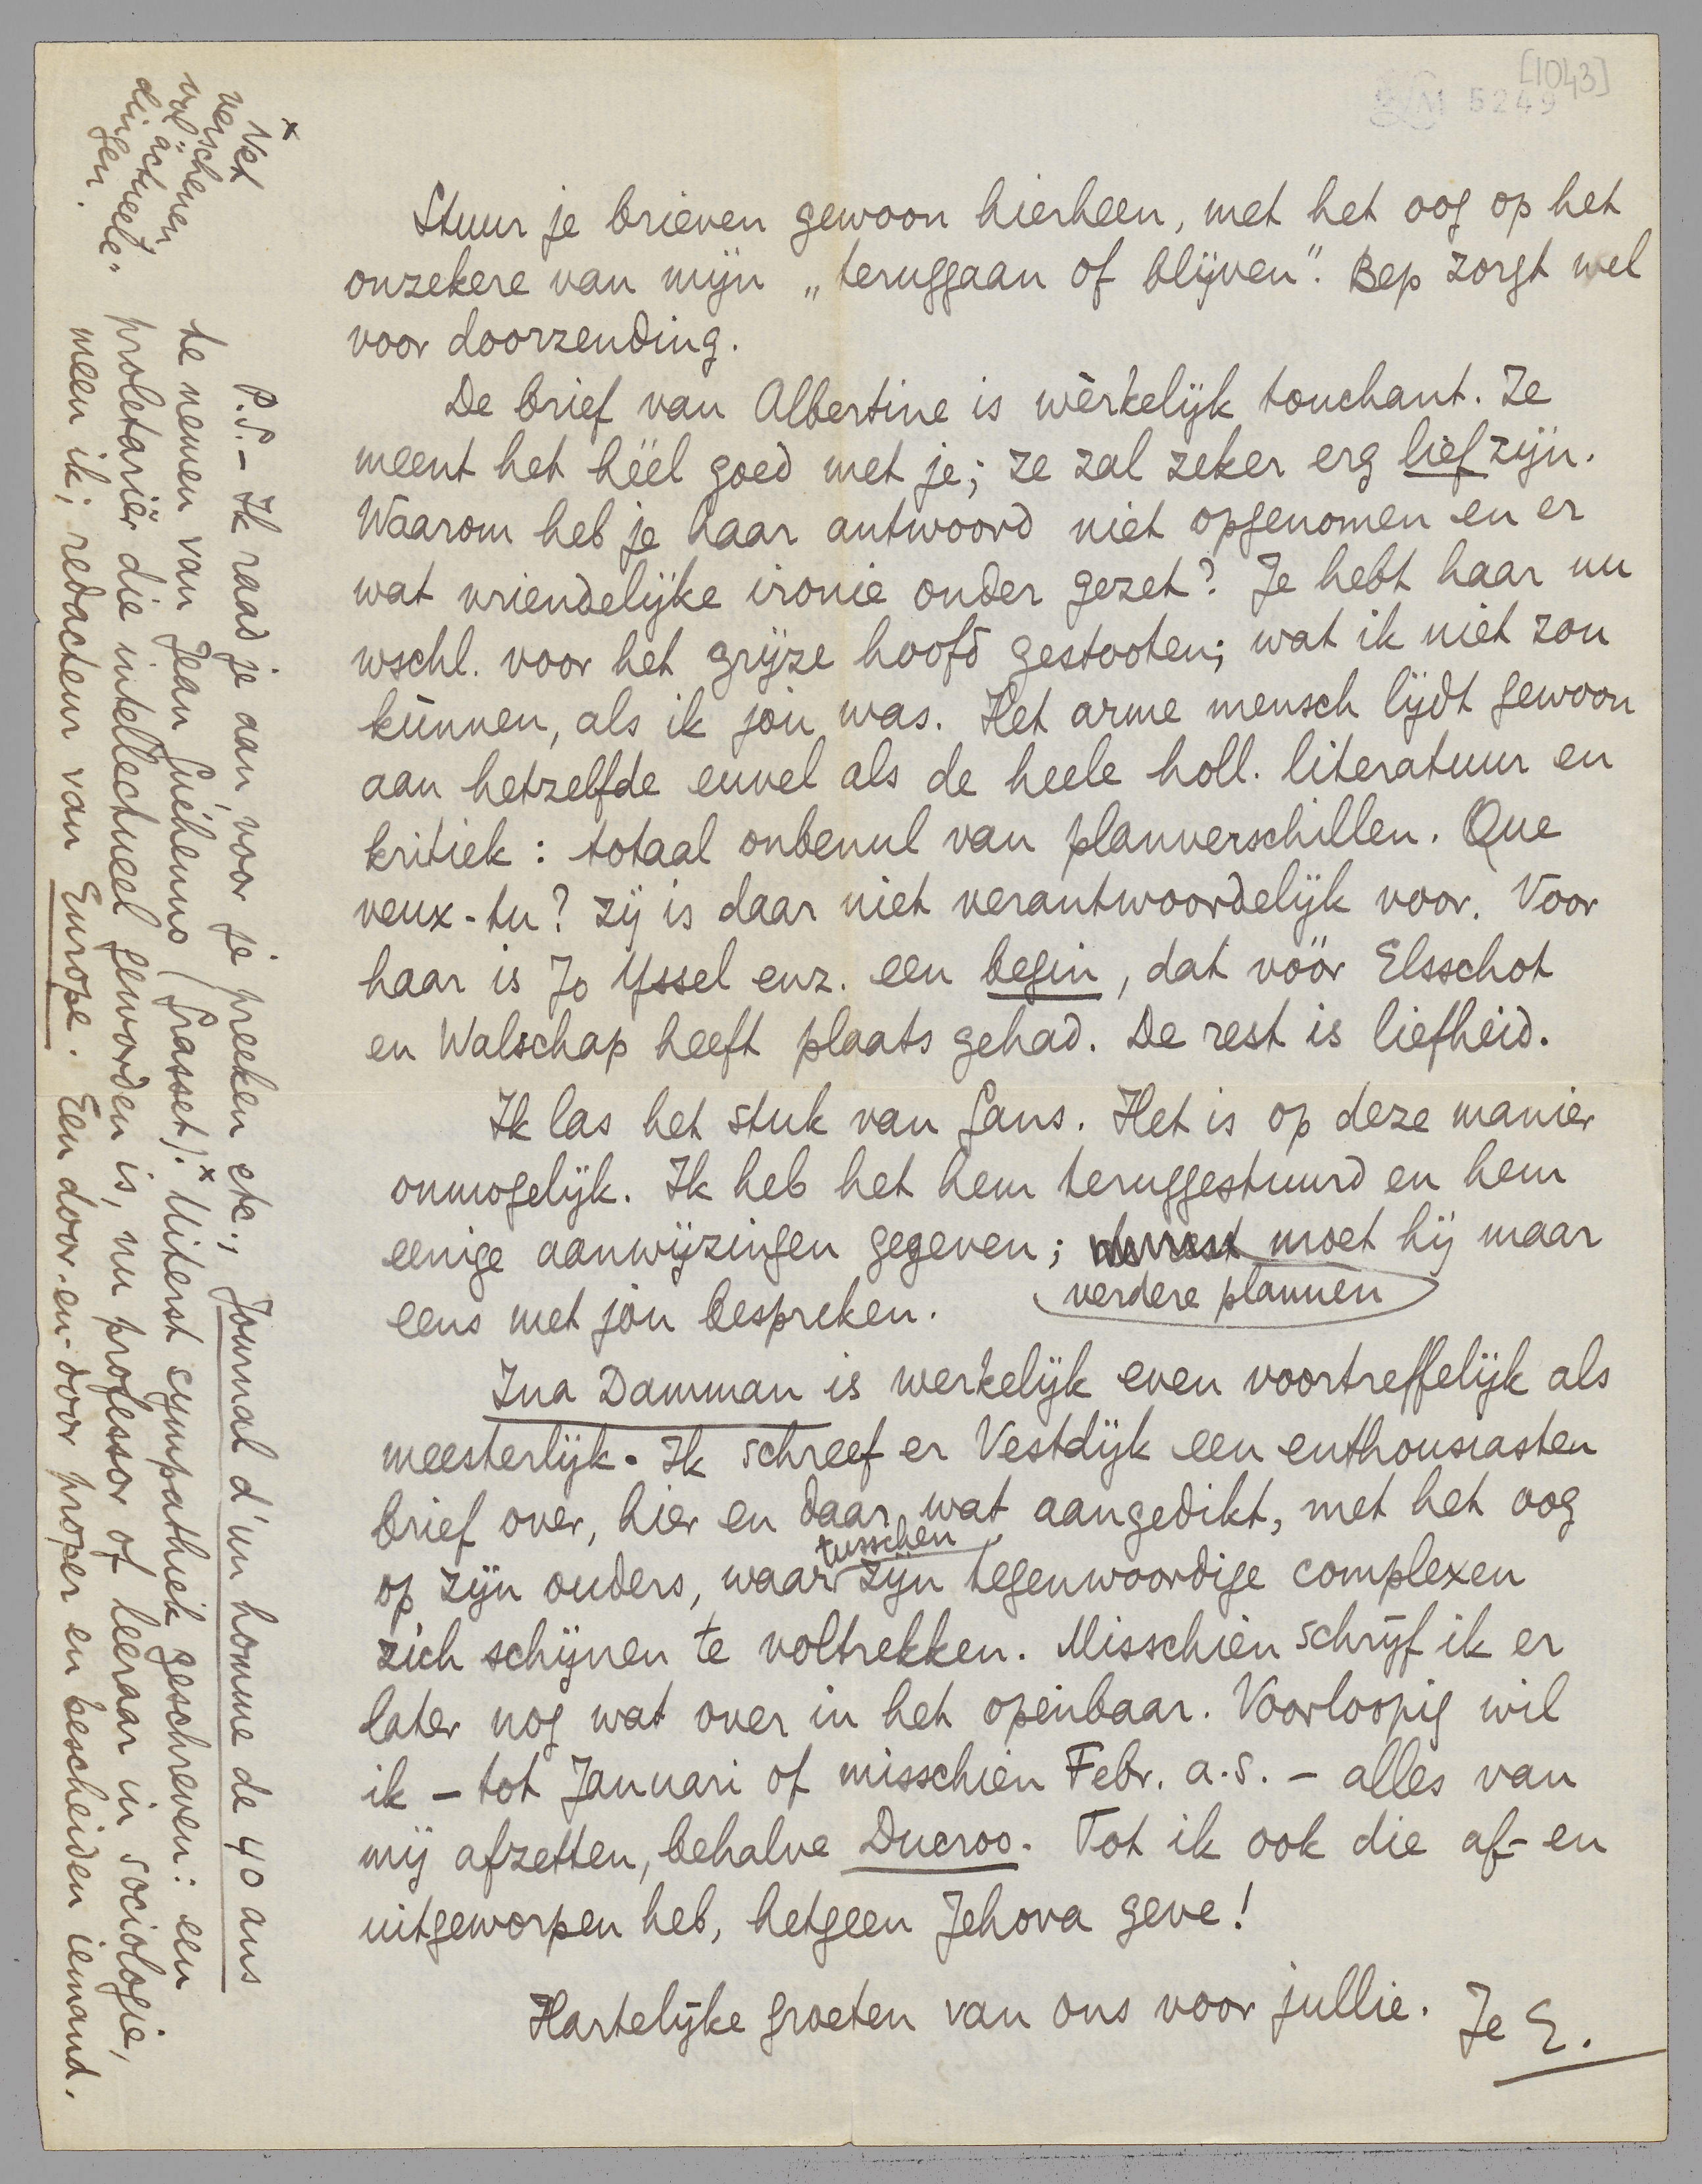 [1043]
LM 5249
Stuur je brieven gewoon hierheen, met het oog op het
onzekere van mijn „teruggaan of blijven”. Bep zorgt wel
voor doorzending.
De brief van Albertine is wèrkelijk touchant. Ze
meent het héél goed met je; ze zal zeker erg lief zijn.
Waarom heb je haar antwoord niet opgenomen en er
wat vriendelijke ironie onder gezet? Je hebt haar nu
wschl. voor het grijze hoofd gestooten; wat ik niet zou
kúnnen, als ik jou was. Het arme mensch lijdt gewoon
aan hetzelfde euvel als de heele holl. literatuur en
kritiek: totaal onbenul van planverschillen. Que
veux-tu? Zij is daar niet verantwoordelijk voor. Voor
haar is Jo Yssel enz. een begin, dat vóór Elsschot
en Walschap heeft plaats gehad. De rest is liefheid.
Ik las het stuk van Gans. Het is op deze manier
onmogelijk. Ik heb het hem teruggestuurd en hem
eenige aanwijzingen gegeven; moet hij maar
verdere plannen
eens met jou bespreken.
Ina Damman is werkelijk even voortreffelijk als
meesterlijk. Ik schreef er Vestdijk een enthousiasten
brief over, hier en daar wat aangedikt, met het oog
op zijn ouders, waartusschen zijn tegenwoordige complexen
zich schijnen te voltrekken. Misschien schrijf ik er
later nog wat over in het openbaar. Voorloopig wil
ik – tot Januari of misschien Febr. a.s. – alles van
mij afzetten, behalve Ducroo. Tot ik ook die af- en
uitgeworpen heb, hetgeen Jehova geve!
Hartelijke groeten van ons voor jullie. Je E.
P.S. – Ik raad je aan, voor je preeken etc., Journal d'un homme de 40 ans
te nemen van Jean Guéhenno (Grasset).x Uiterst sympathiek geschreven: een
proletariër die intellectueel geworden is, nu professor of leeraar in sociologie,
meen ik; redacteur van Europe. Een door-en-door proper en bescheiden iemand.
x Net
verschenen
vol „actueele”
dingen.